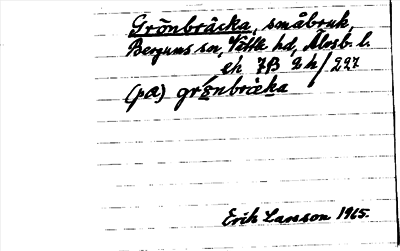 Grönbräcka, småbruk,
Bergums sn, Vättle hd, Älvsb. l.
ek 7B 2h/227
(pa) grönbräka
Erik Larsson 1965.